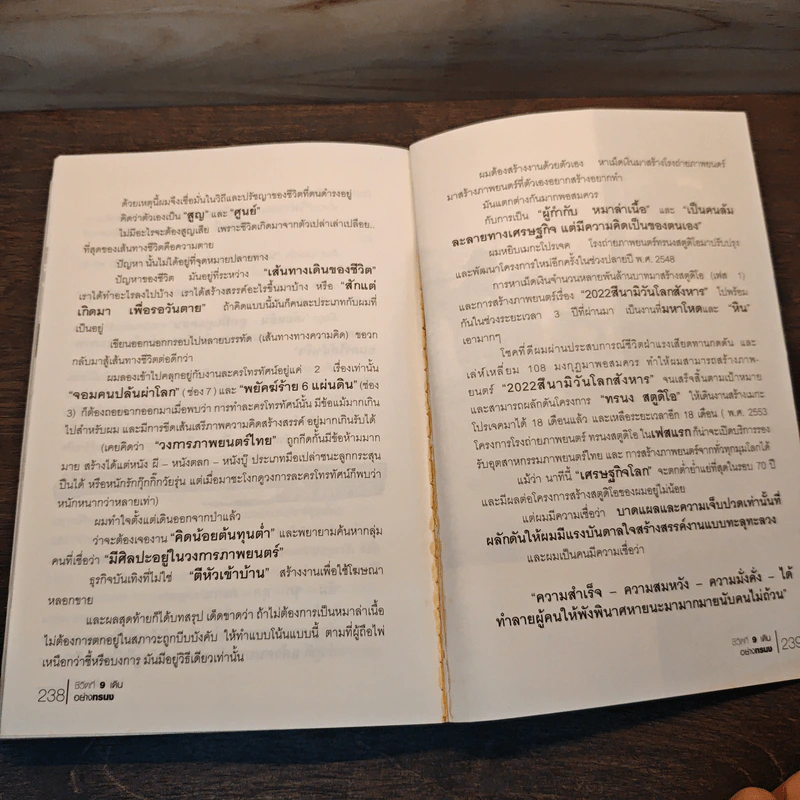 ด้วยเหตุนี้ผมจึงเชื่อมั่นในวิถีและปรัชญาของชีวิตที่ตนดำรงอยู่
คิดว่าตัวเองเป็น “สูญ” และ “ศูนย์”
ไม่มีอะไรจะต้องสูญเสีย เพราะชีวิตเกิดมาจากตัวเปล่าเล่าเปลือย..
ที่สุดของเส้นทางชีวิตคือความตาย
ปัญหา นั้นไม่ได้อยู่ที่จุดหมายปลายทาง
ปัญหาของชีวิต มันอยู่ที่ระหว่าง “เส้นทางเดินของชีวิต”
เราได้ทำอะไรลงไปบ้าง เราได้สร้างสรรค์อะไรขึ้นมาบ้าง หรือ “สักแต่
เกิดมา เพื่อรอวันตาย” ถ้าคิดแบบนี้มันก็คนละประเภทกับผมที่
เป็นอยู่
เขียนออกนอกกรอบไปหลายบรรทัด (เส้นทางทางความคิด) ขอวก
กลับมาสู้เส้นทางชีวิตต่อดีกว่า
ผมลองเข้าไปคลุกอยู่กับงานละครโทรทัศน์อยู่แค่ 2 เรื่องเท่านั้น
“จอมคนปล้นผ่าโลก” (ช่อง 7) และ “พยัคฆ์ร้าย 6 แผ่นดิน” (ช่อง
3) ก็ต้องถอยฉากออกมาเมื่อพบว่า การทำละครโทรทัศน์นั้น มีข้อแม้มากเกิน
ไปสำหรับผม และมีการขีดเส้นสร้างความคิดสร้างสรรค์ อยู่มากเกินรับได้
(เคยคิดว่า “วงการภาพยนตร์ไทย” ถูกกีดกั้นมีข้อห้ามมาก
มาย สร้างได้แต่หนัง ผี – หนังตลก – หนังบู๊ ประเภทมือเปล่าชนะลูกกระสุน
ปืนได้ หรือหนักรักกุ๊กกิ๊กวัยรุ่น แต่เมื่อมาชะโงกดูวงการละครโทรทัศน์ก็พบว่า
หนักหนากว่าหลายเท่า)
ผมทำใจตั้งแต่เดินออกจากป่าแล้ว
ว่าจะต้องเจองาน “คิดน้อยต้นทุนต่ำ” และพยายามค้นหากลุ่ม
คนที่เชื่อว่า “มีศิลปะอยู่ในวงการภาพยนตร์”
ธุรกิจบันเทิงที่ไม่ใช่ “ตีหัวเข้าบ้าน” สร้างงานเพื่อใช้โฆษณา
หลอกขาย
และผลสุดท้ายก็ได้บทสรุป เด็ดขาดว่า ถ้าไม่ต้องการเป็นหมาล่าเนื้อ
ไม่ต้องการตกอยู่ในสภาวะถูกบีบบังคับ ให้ทำแบบโน้นแบบนี้ ตามที่ผู้ถือไพ่
เหนือกว่าชี้หรือบงการ มันมีอยู่วิธีเดียวเท่านั้น
238 ชีวิตที่ 9 เดิน
อย่างทรนง
ผมต้องสร้างงานด้วยตัวเอง หาเม็ดเงินมาสร้างโรงถ่ายภาพยนตร์
มาสร้างภาพยนตร์ที่ตัวเองอยากสร้างอยากทำ
มันแตกต่างกันมากพอสมควร
กับการเป็น “ผู้กำกับ หมาล่าเนื้อ” และ “เป็นคนล้ม
ละลายทางเศรษฐกิจ แต่มีความคิดเป็นของตนเอง”
ผมหยิบเมกะโปรเจค โรงถ่ายภาพยนตร์ทรนงสตูดิโอมาปรับปรุง
และพัฒนาโครงการใหม่อีกครั้งในช่วงปลายปี พ.ศ. 2548
การหาเม็ดเงินจำนวนหลายพันล้านบาทมาสร้างสตูดิโอ (เฟส 1)
และการสร้างภาพยนตร์เรื่อง “2022สึนามิวันโลกสังหาร” ไปพร้อม
กันในช่วงระยะเวลา 3 ปีที่ผ่านมา เป็นงานที่มหาโหดและ “หิน”
เอามากๆ
โชคที่ดีผมผ่านประสบการณ์ชีวิตฝ่าแรงเสียดทานกดดัน และ
เล่ห์เหลี่ยม 108 มงกุฎมาพอสมควร ทำให้ผมสามารถสร้างภาพ-
ยนตร์ “2022สึนามิวันโลกสังหาร” จนเสร็จสิ้นตามเป้าหมาย
และสามารถผลักดันโครงการ “ทรนง สตูดิโอ” ให้เดินงานสร้างเมกะ
โปรเจคมาได้ 18 เดือนแล้ว และเหลือระยะเวลาอีก 18 เดือน ( พ.ศ. 2553
โครงการโรงถ่ายภาพยนตร์ ทรนงสตูดิโอ ในเฟสแรก ก็น่าจะเปิดบริการรอง
รับอุตสาหกรรมภาพยนตร์ไทย และ การสร้างภาพยนตร์จากทั่วทุกมุมโลกได้
แม้ว่า นาทีนี้ “เศรษฐกิจโลก” จะตกต่ำย่ำแย่ที่สุดในรอบ 70 ปี
และมีผลต่อโครงการสร้างสตูดิโอของผมอยู่ไม่น้อย
แต่ผมมีความเชื่อว่า บาดแผลและความเจ็บปวดเท่านั้นที่
ผลักดันให้ผมมีแรงบันดาลใจสร้างสรรค์งานแบบทะลุทะลวง
และผมเป็นคนมีความเชื่อว่า
“ความสำเร็จ – ความสมหวัง – ความมั่งคั่ง – ได้
ทำลายผู้คนให้พังพินาศหายนะมามากมายนับคนไม่ถ้วน”
ชีวิตที่ 9 เดิน
อย่างทรนง 239